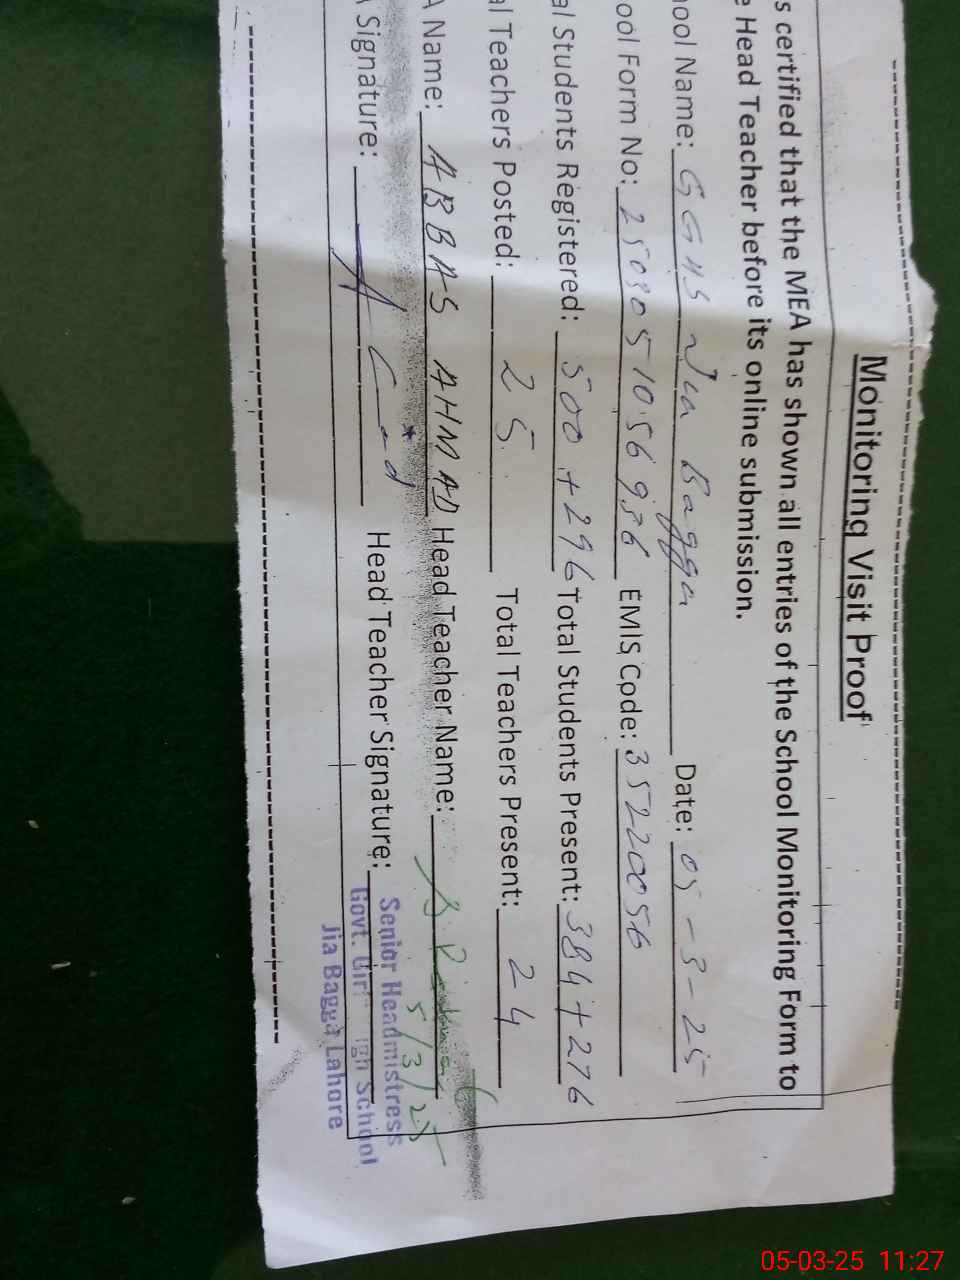 Monitoring Visit Proof
s certified that the MEA has shown all entries of the School Monitoring Form to
e Head Teacher before its online submission.
ool Name: GGHS Jia Bagga Date: 05-3-25
ool Form No: EMIS Code: 35220056
al Students Registered: 500 + 296 Total Students Present: 384 + 276
al Teachers Posted: 25 Total Teachers Present: 24
A Name: ABBAS AHMAD Head Teacher Name:
A Signature: Head Teacher Signature:
5/3/25
Senior Headmistress
Govt. Girl High School
Jia Bagga Lahore
05-03-25 11:27